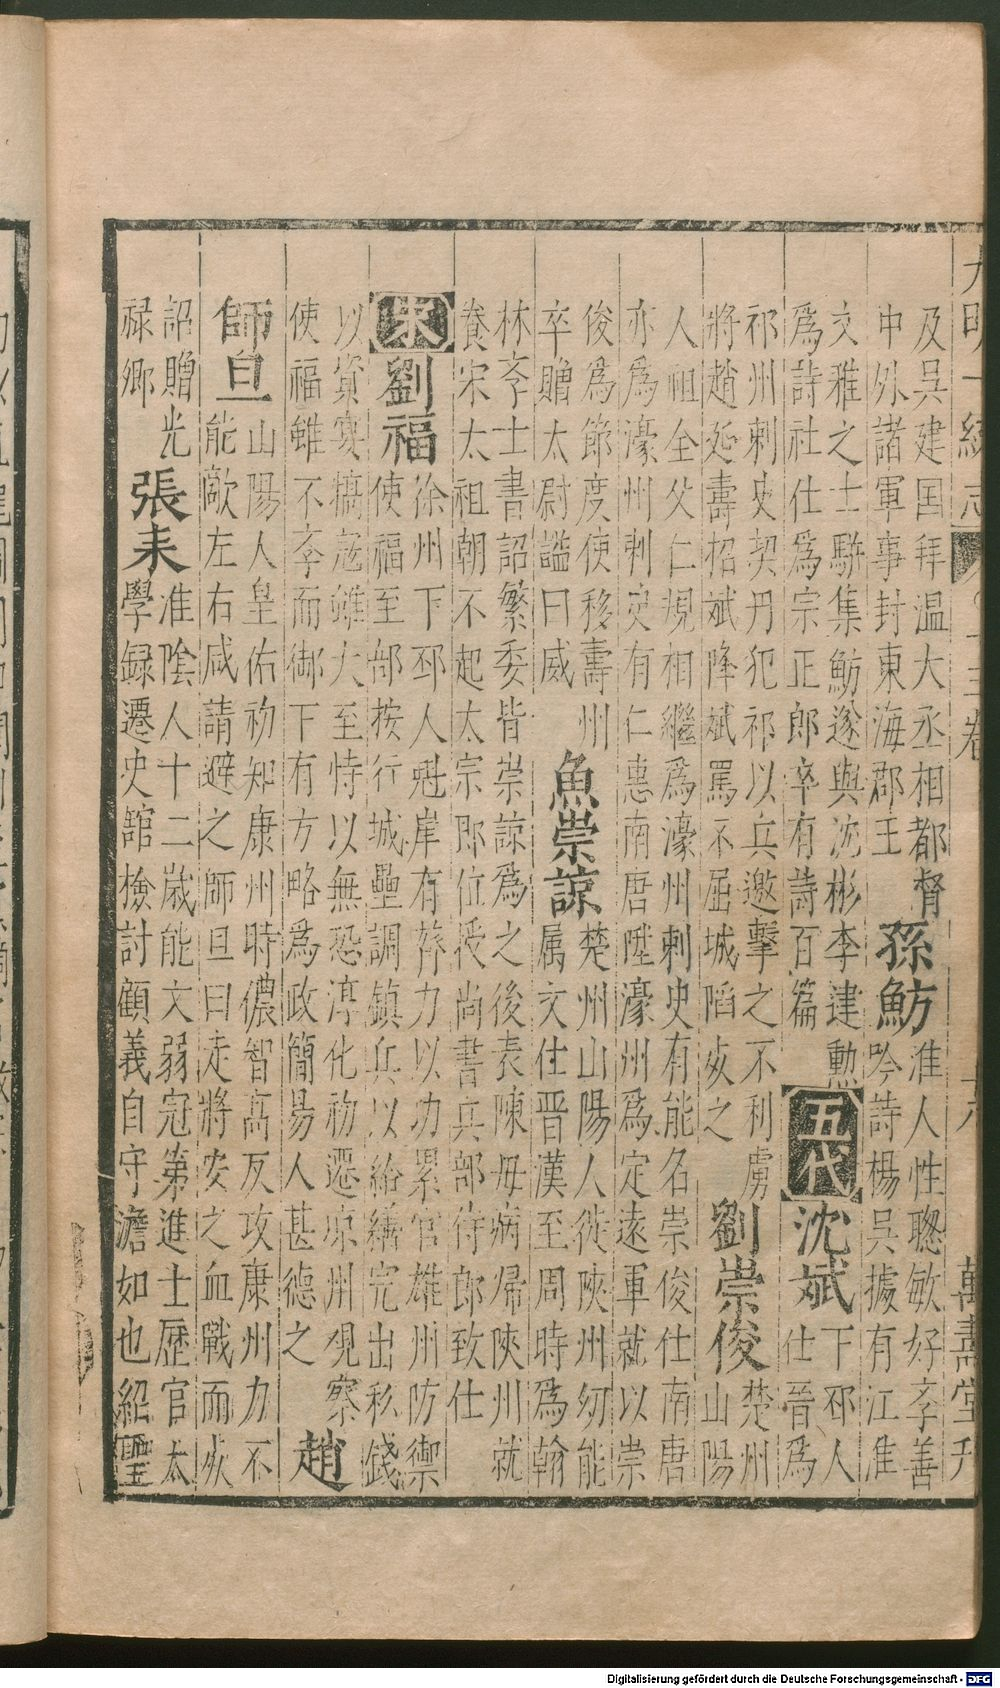 大明一統志 十三卷 十六 萬壽堂刊
及吳建国拜温大丞相都督
中外諸軍事封東海郡王
孫魴
淮人性聦敏好斈善
吟詩楊吳據有江淮
文雅之士駢集魴遂與沈彬李建勲
爲詩社仕爲宗正郎卒有詩百篇
五代
沈斌
下邳人
仕晋爲
祁州刺史契丹犯祁以兵邀擊之不利虜
將趙延壽招斌降斌罵不屈城陷㱙之
劉崇俊
楚州
山陽
人祖全父仁規相繼爲濠州刺史有能名崇俊仕南唐
亦爲濠州刺史有仁惠南唐陞濠州爲定遠軍就以崇
俊爲節度使移壽州
卒贈太尉謚曰威
魚崇諒
楚州山陽人徙陝州㓜能
属文仕晋漢至周時爲翰
林斈士書詔繁委皆崇諒爲之後表陳母病帰陝州就
養宋太祖朝不起太宗即位授尚書兵部侍郎致仕
宋
劉福
徐州下邳人魁岸有膂力以功累官雄州防禦
使福至部按行城壘調鎮兵以給繕完出私錢
以資宴犒冦雖大至恃以無恐淳化初遷凉州覌察
使福雖不斈而御下有方略爲政簡易人甚德之
趙
師旦
山陽人皇佑初知康州時儂智髙反攻康州力不
能敵左右咸請避之師旦曰走將安之血戰而㱙
詔贈光
禄卿
張耒
淮隂人十二歳能文弱冠第進士歴官太
學録遷史舘檢討顧義自守澹如也紹聖
Digitalisierung gefördert durch die Deutsche Forschungsgemeinschaft - DFG